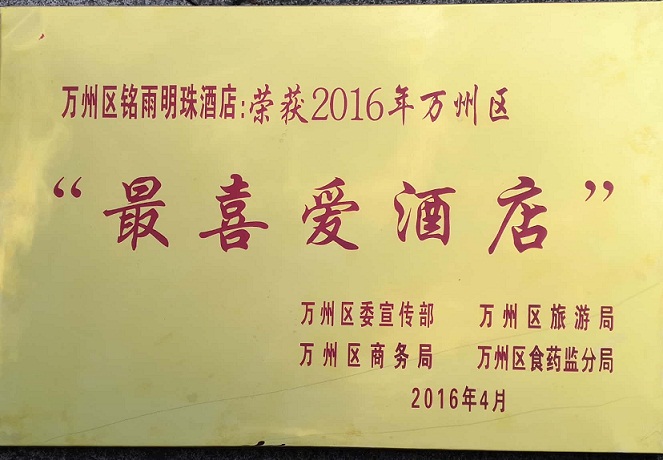 万州区铭雨明珠酒店:荣获2016年万州区
“最喜爱酒店”
万州区委宣传部 万州区旅游局
万州区商务局 万州区食药监分局
2016年4月